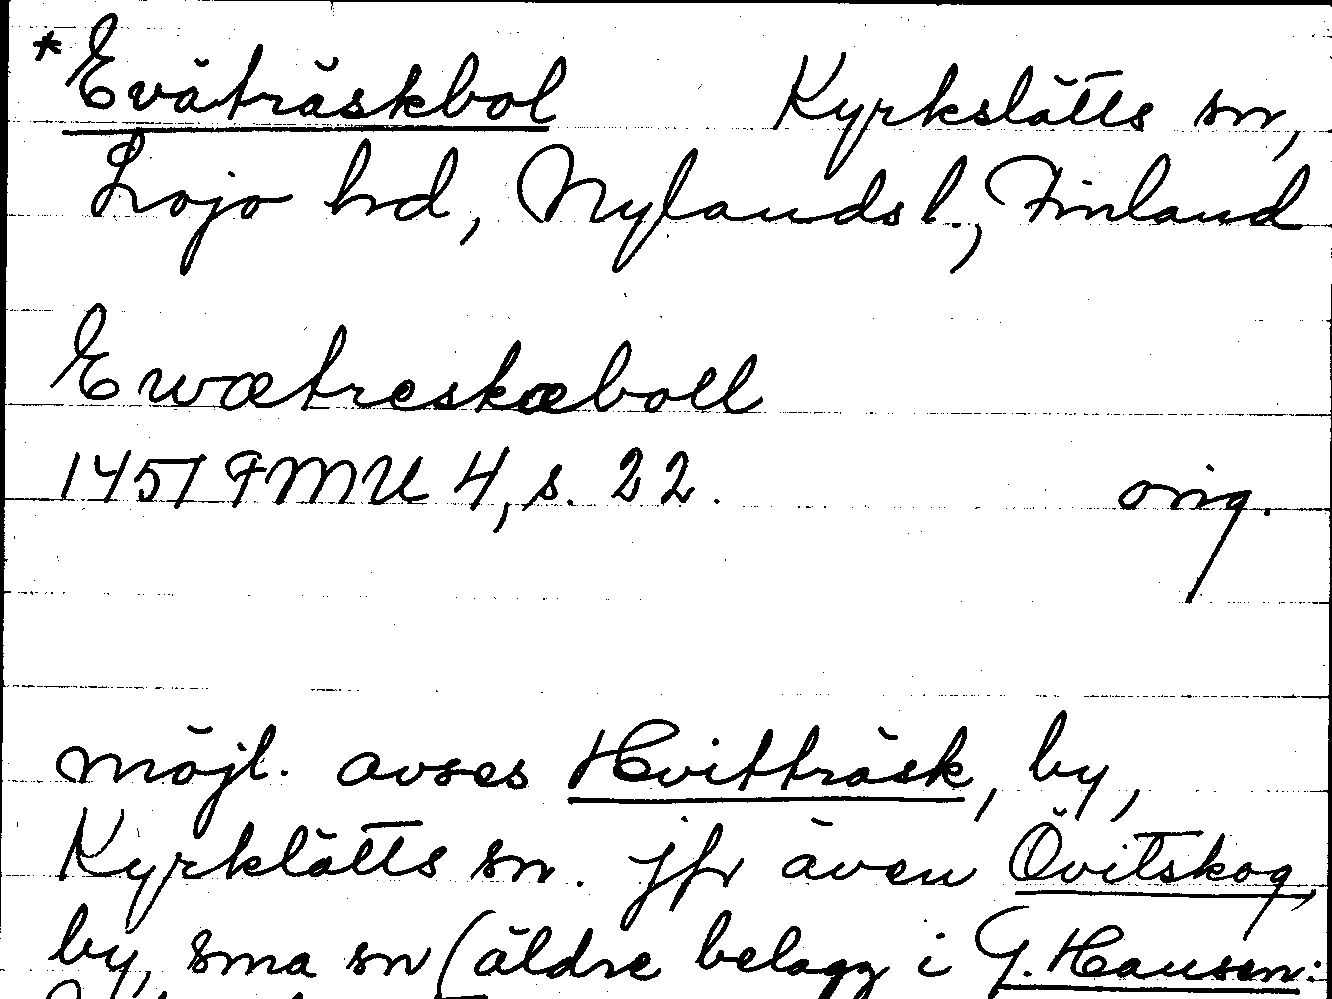 *Eväträskbol Kyrkslätts sn,
Lojo hd, Nylands l., Finland
Ewætreskæboll
1451 FMU 4, s. 22. orig.
möjl. avses Hvitträsk, by,
Kyrklätts sn. jfr även Övitskog,
by, sma sn (äldre belägg i G. Hausen: